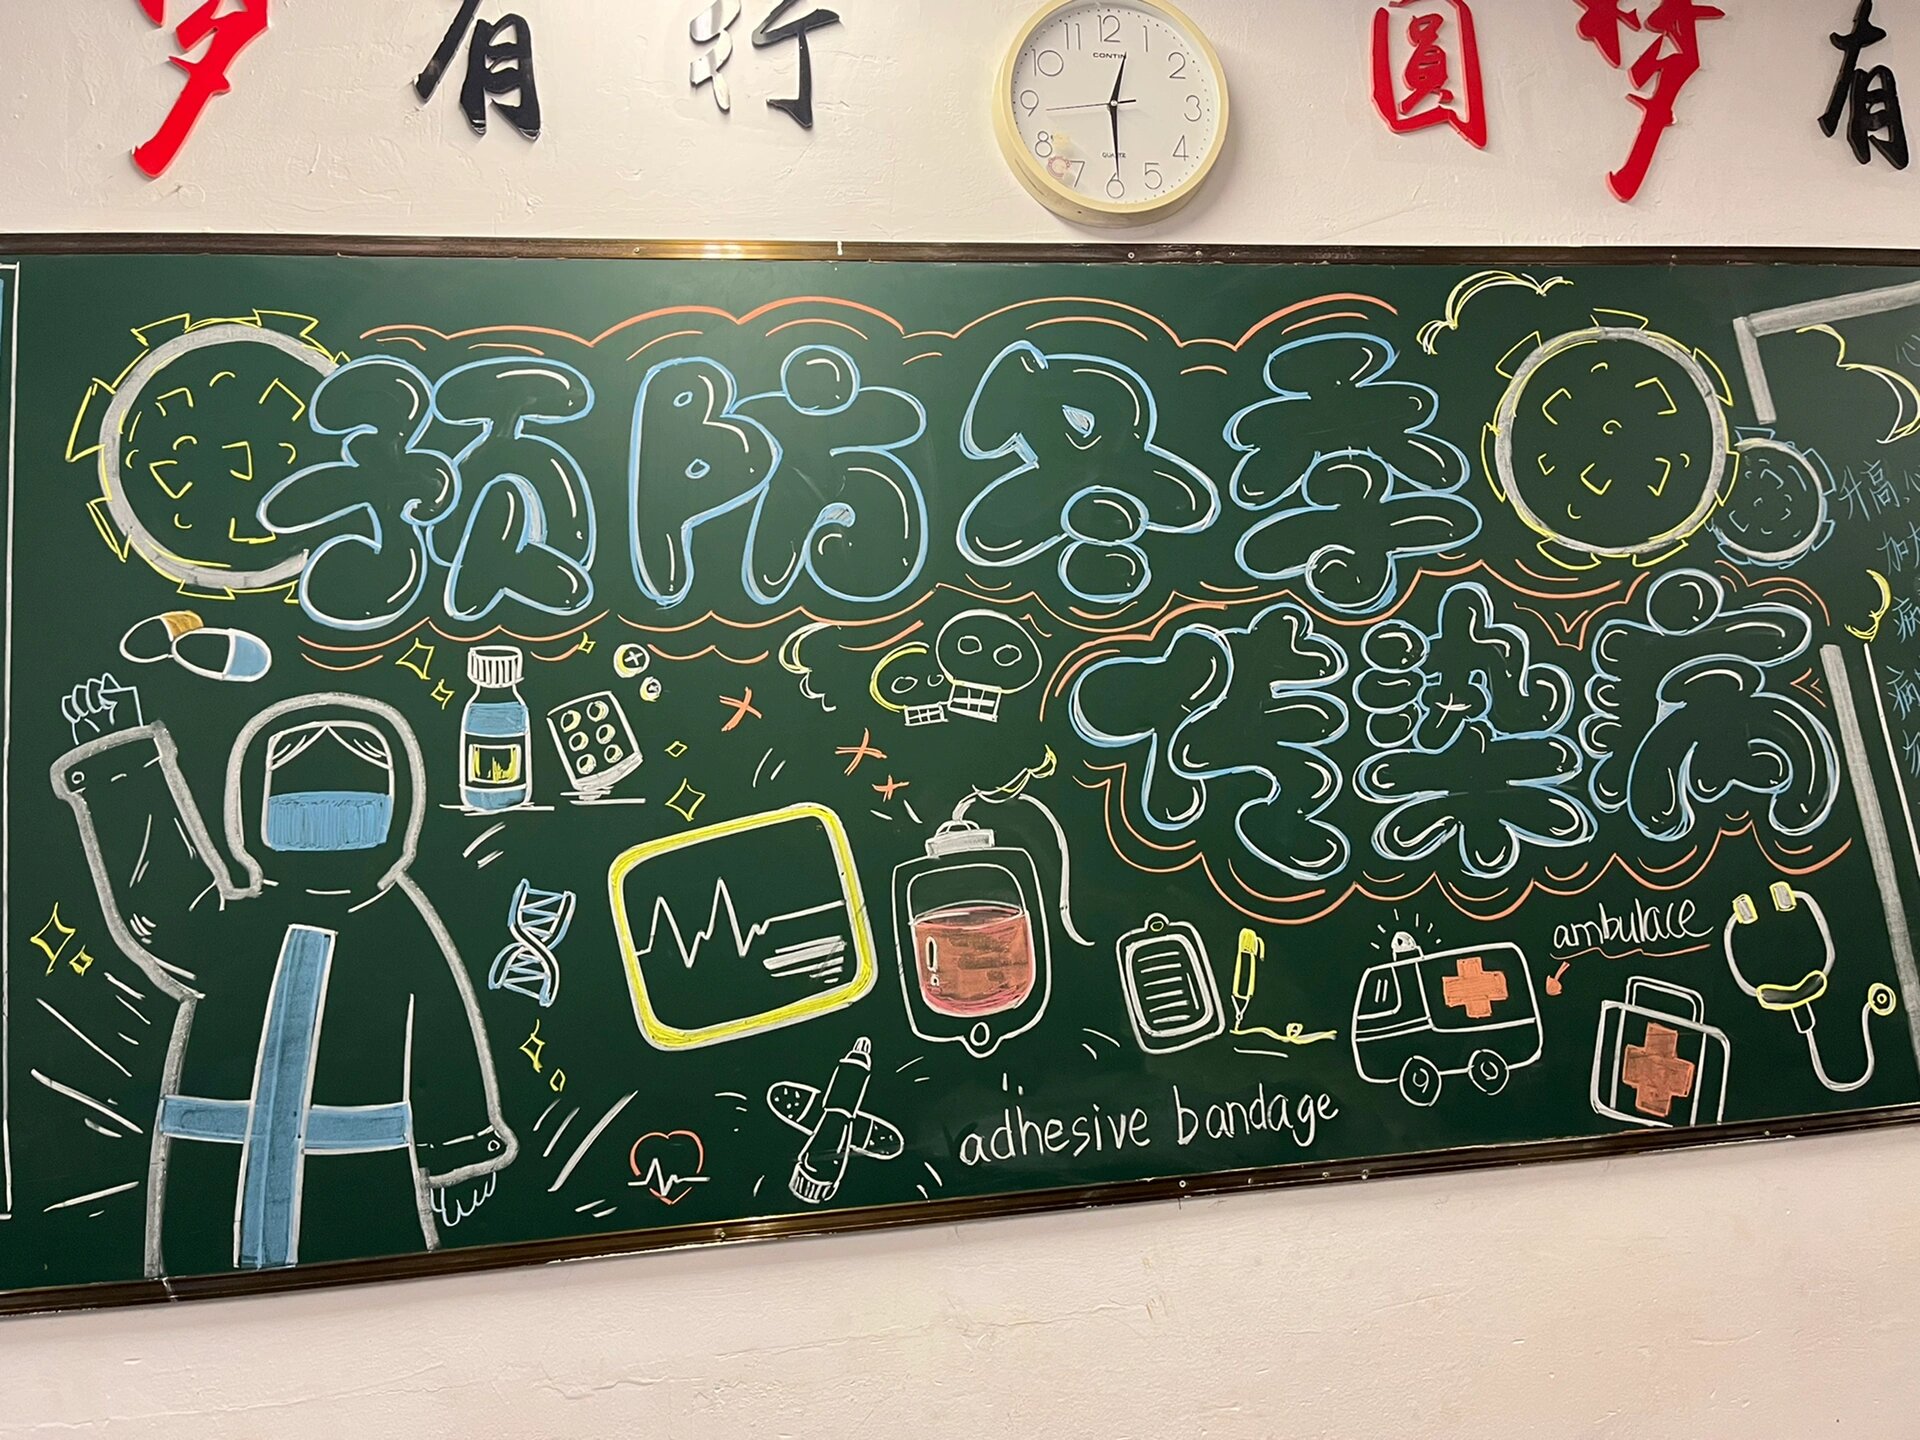 梦有行 圆梦有
12 1 2 3 4 5 6 7 8 9 10 11
QUARTZ
预防冬季
传染病
升高,心
病
病
ambulace
adhesive bandage